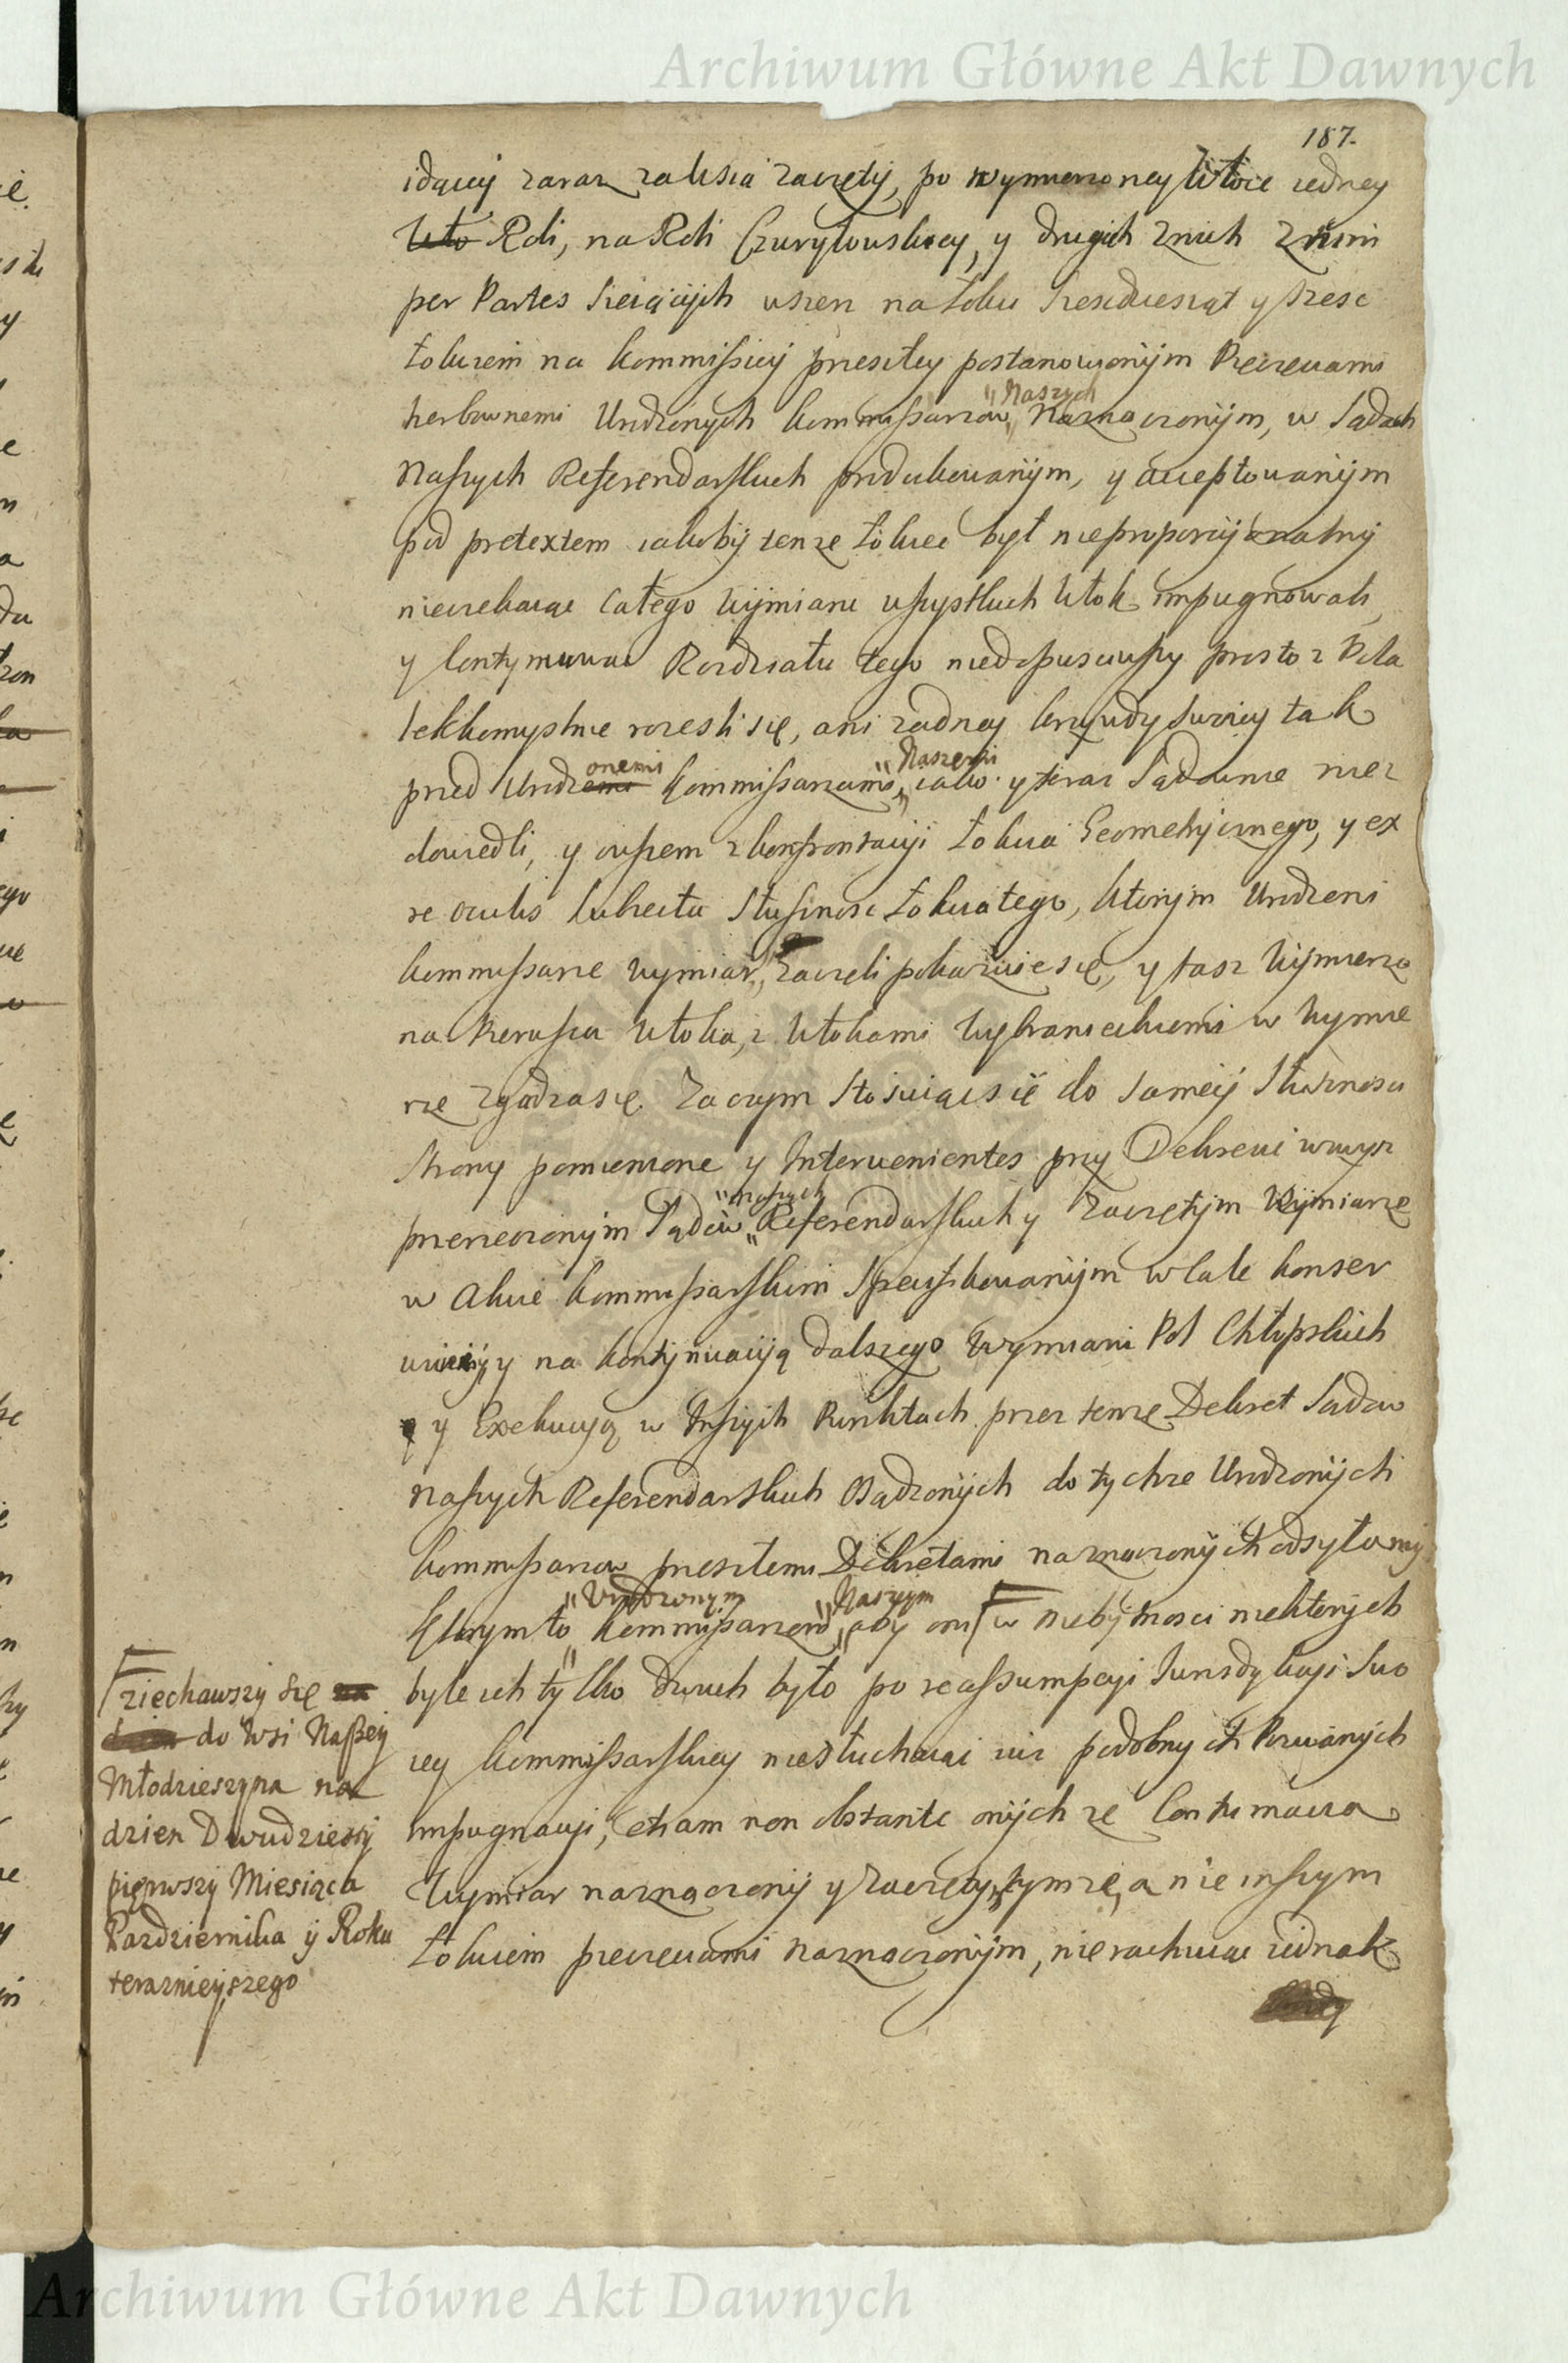 Archiwum Główne Akt Dawnych
187.
idącey zaraz za Wsią zaczętey, po wymierzoney Włoce iedney
Wło Roli, na Roli Czuryłowskiey, y drugich z nich z nimi
per Partes sieiących wszerz na łokci szescdziesiąt y szesc
łokciem na kommissiey przeszłey postanowionym Pieczęciami
herbownemi Urodzonych kommissarzow "Naszych" Naznaczonym, w Sądach
Naszych Referendarskich produkowanym, y acceptowanym
pod pretextem iakoby tenze łokiec był nieproporcyonalny
nieczekaiąc całego Wymiaru wszystkich Włok impugnowali,
y kontynuowac Rozdziału tego niedopusciwszy prosto z Pola
lekkomyslnie rozeszli się, ani zadney krzywdy swoiey tak
przed Urodzonemi kommissarzami "Naszemi" iako y teraz Sądownie nie
dowiedli, y owszem z konfrontacyi Łokcia Geometrycznego, y ex
re oculis subiecta słusznosc Łokcia tego, ktorym Urodzeni
kommissarze wymiar, zaczęli pokazuie się, y tasz Wymierzo
na Pierwsza Włoka, z Włokami Wybranieckiemi w Wymie
rze zgadza się. Zaczym stosuiąc się do samey słusznosci
Strony pomienione y Intervenientes przy Dekrecie wwysz
przerzeczonym Sądow "naszych" Referendarskich y zaczętym Wymiarze
w Akcie kommissarskim specyfikowanym w cale konser
wuiemy y na kontynuacyią dalszego Wymiaru Pol Chłopskich
y Exekucyą w Inszych Punktach przez tenze Dekret Sądow
Naszych Referendarskich Osądzonych do tychze Urodzonych
kommissarzow przeszłemi Dekretami naznaczonych odsyłamy
Ktorym to "Urodzonym" kommissarzom "Naszym" aby oni w niebytnosci niektorych
byle ich tylko dwuch było po reassumpcyi Jurisdykcyi swo
iey kommissarskiey niesłuchaiąc nic podobnych Pozwanych
impugnacyi, etiam non obstante onych ze Contumacia
Wymiar naznaczony y zaczęty, tymze, a nie inszym
Łokciem pieczęciami naznaczonym, nierachuiąc iednak
ziechawszy się
do Wsi Naszey
Młodzieszyna na
dzien Dwudziesty
pierwszy Miesiąca
Pazdziernika y Roku
teraznieyszego
Archiwum Główne Akt Dawnych